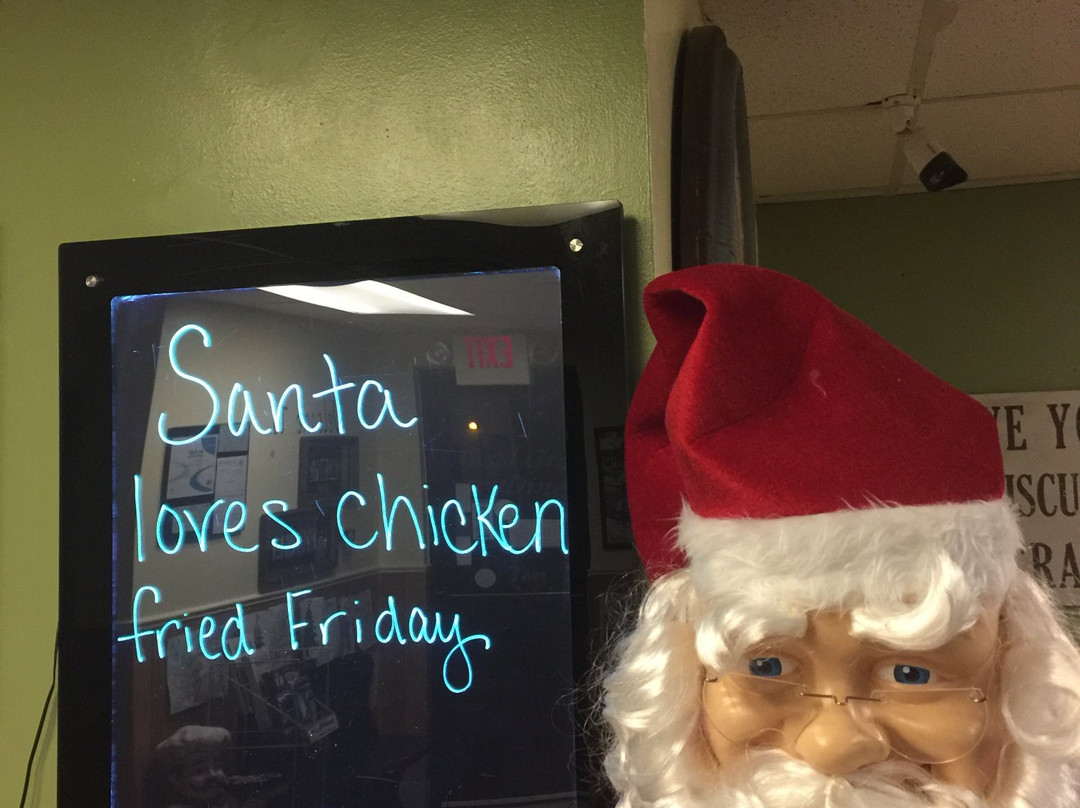 Santa
loves chicken
fried Friday
EXIT
VE YO
ISCU
RA